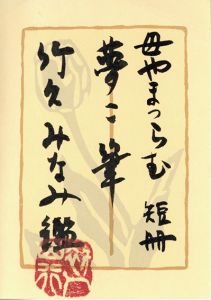 母やまつらむ 短冊
夢二筆
竹久みなみ鑑